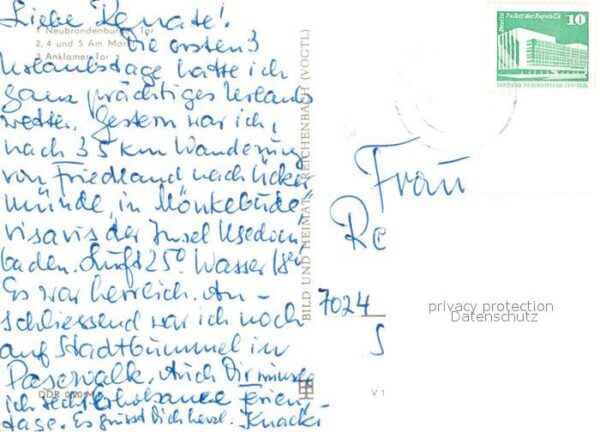 Liebe Renate!
1 Neubrandenburger Tor
2, 4 und 5 Am Mar
3 Anklamer Tor
Die ersten 3
Urlaubstage hatte ich
ganz prächtiges Urlaubs
wetter. Gestern war ich,
nach 35 km Wanderung
von Friedland nach Ücker
münde, in Mönkebude
visavis der Insel Usedom
baden. Luft 25° Wasser 18°
Es war herrlich. An-
schliessend war ich noch
auf Stadtbummel in
Pasewalk. Auch Dir wünsche
ich recht erholsame Ferien-
tage. Es grüsst Dich herzl. Knacki
DDR 0,20 M
BILD UND HEIMAT REICHENBACH (VOGTL)
V 1
Berlin Palast der Republik
10
DEUTSCHE DEMOKRATISCHE REPUBLIK
Frau
Re
7024
S
privacy protection
Datenschutz